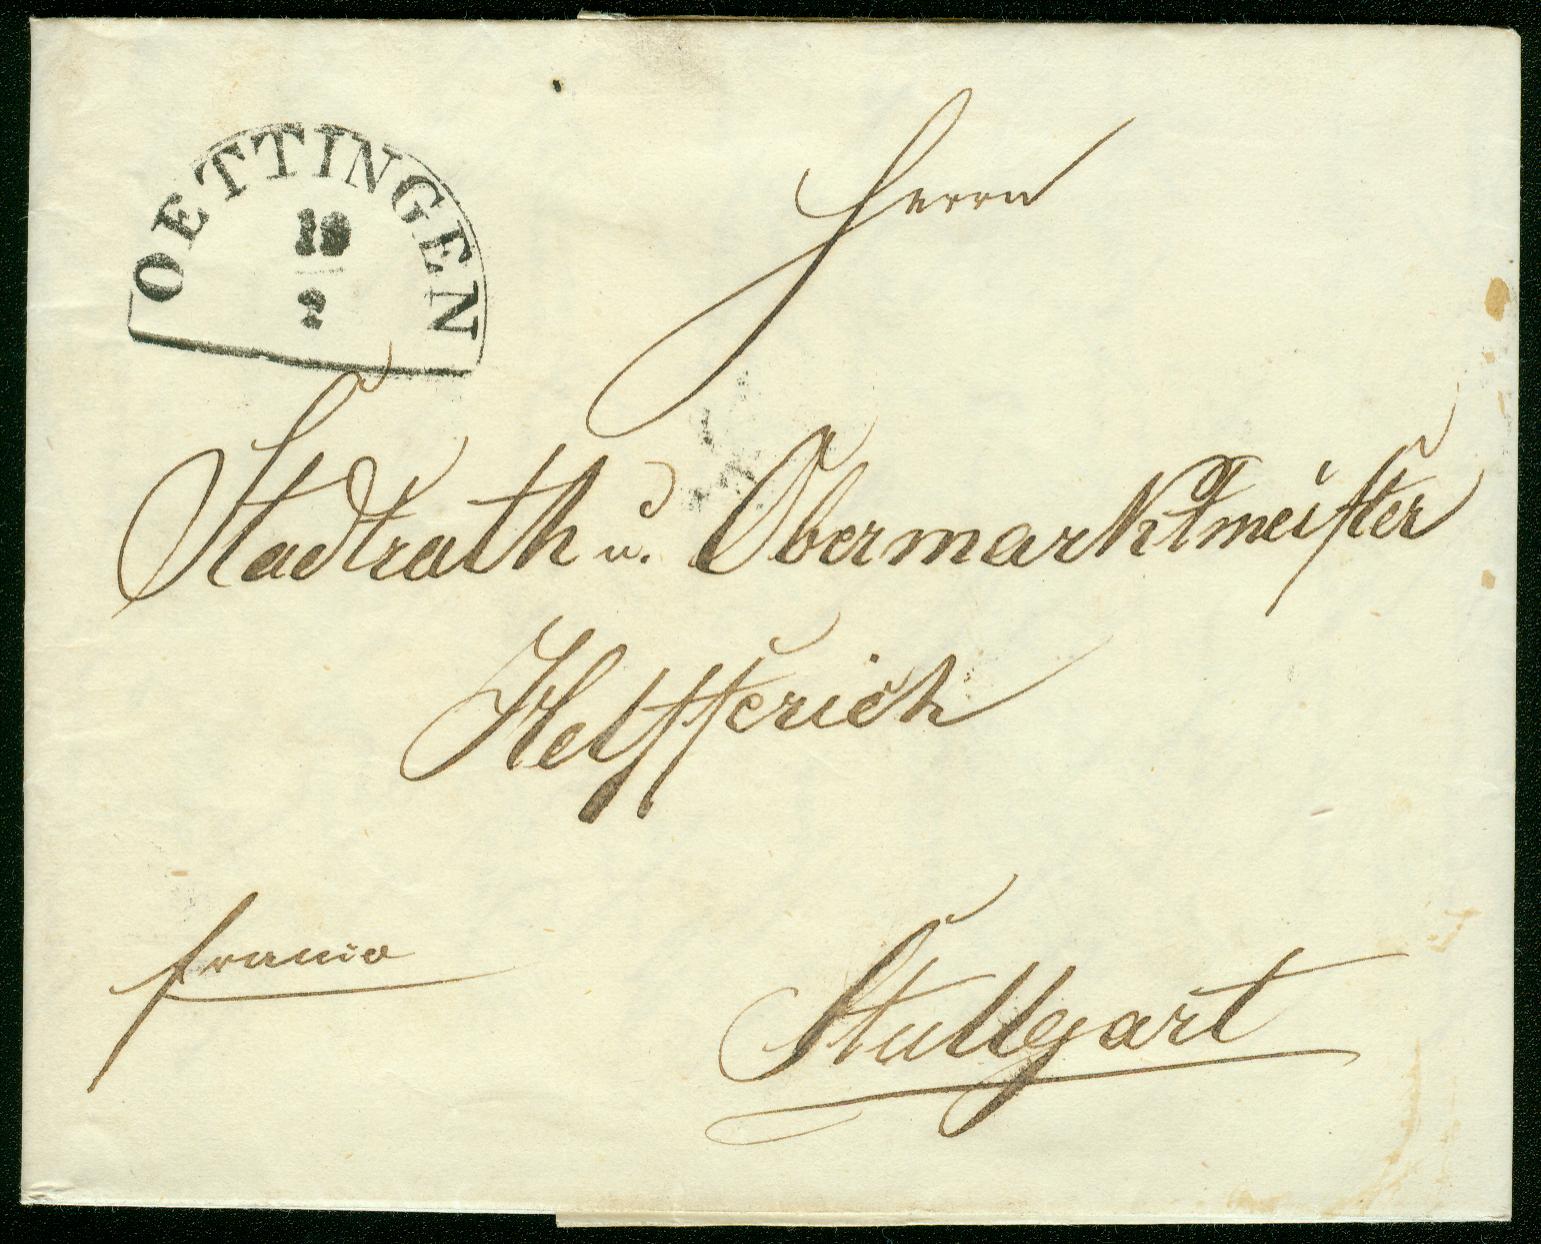 OETTINGEN
19
2
Herrn
Stadtrath u. Obermarktmeister
Helfferich
franco
Stuttgart